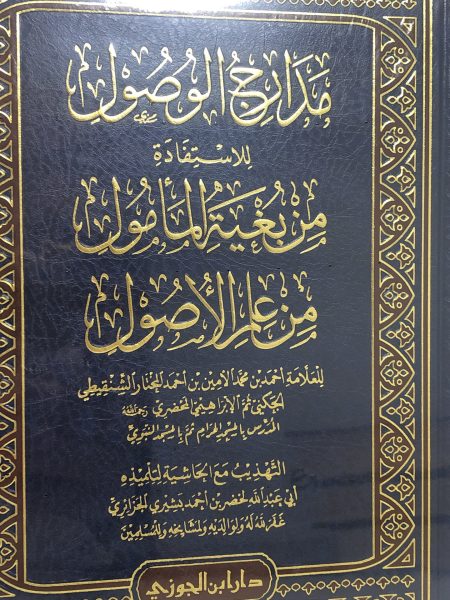 مَدَارِجُ الوُصُولِ
لِلاسْتِفَادَةِ
مِنْ بُغْيَةِ المَأْمُولِ
مِنْ عِلْمِ الأُصُولِ
للعلامة أحمد بن محمد الأمين بن أحمد المختار الشنقيطي
الجكني ثم الإبراهيمي المحضري رحمه الله
المدرس بالمسجد الحرام ثم بالمسجد النبوي
التهذيب مع الحاشية لتلميذه
أبي عبد الله لخضر بن أحمد بشيري الجزائري
غفر الله له ولوالديه ولمشايخه وللمسلمين
دار ابن الجوزي